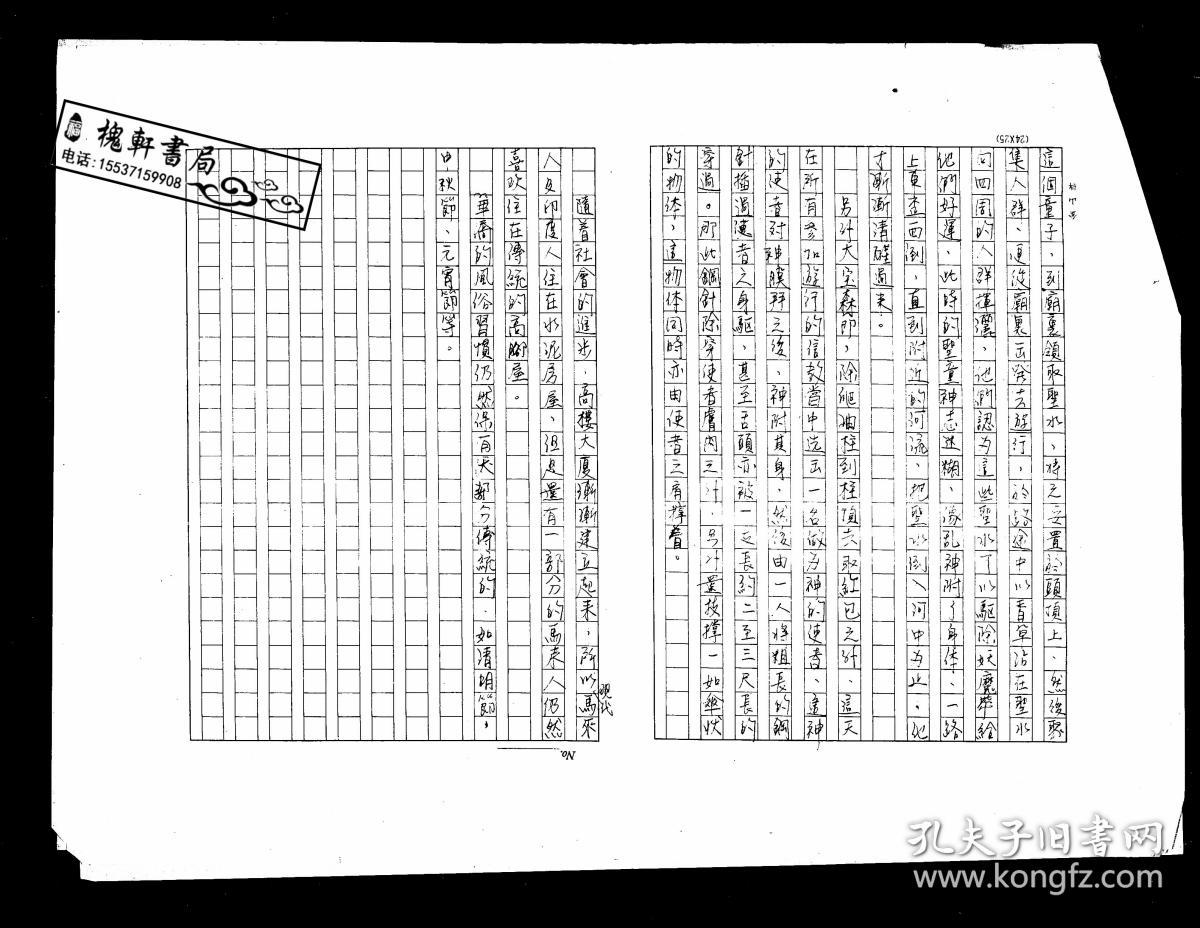 這個童子，到廟裏領取聖水，將之安置於頭頂上，然後聚
集人群，再從廟裏出發去遊行，於路途中以香草沾在聖水
向四周的人群揮灑，他們認為這些聖水可以驅除妖魔帶給
他們好運，此時的聖童神志迷糊，像亂神附了身体，一路
上東歪西倒，直到附近的河流，把聖水倒入河中為止，他
才漸漸清醒過來。
另外大宝森節，除爬油柱到柱頂去取紅包之外，這天
在所有參加遊行的信教當中选出一名做為神的使者，這神
的使者对神膜拜之後，神附其身，然後由一人將粗長的鋼
針插過使者之身驅，甚至舌頭亦被一支長約二至三尺長的
穿過。那此鋼針除穿使者膚肉之外，另外還技撑一如傘狀
的物体，這物体同時亦由使者之肩撑着。
隨着社會的進步，高樓大廈漸漸建立起來，所以馬來
現代
人及印度人住在水泥房屋，但是還有一部分的馬來人仍然
喜欢住在傳統的高腳屋。
華裔的風俗習慣仍然保有大部分傳統的，如清明節，
中秋節、元宵節等。
(24X25)
No.
槐軒書局
电话:15537159908
孔夫子旧书网
www.kongfz.com